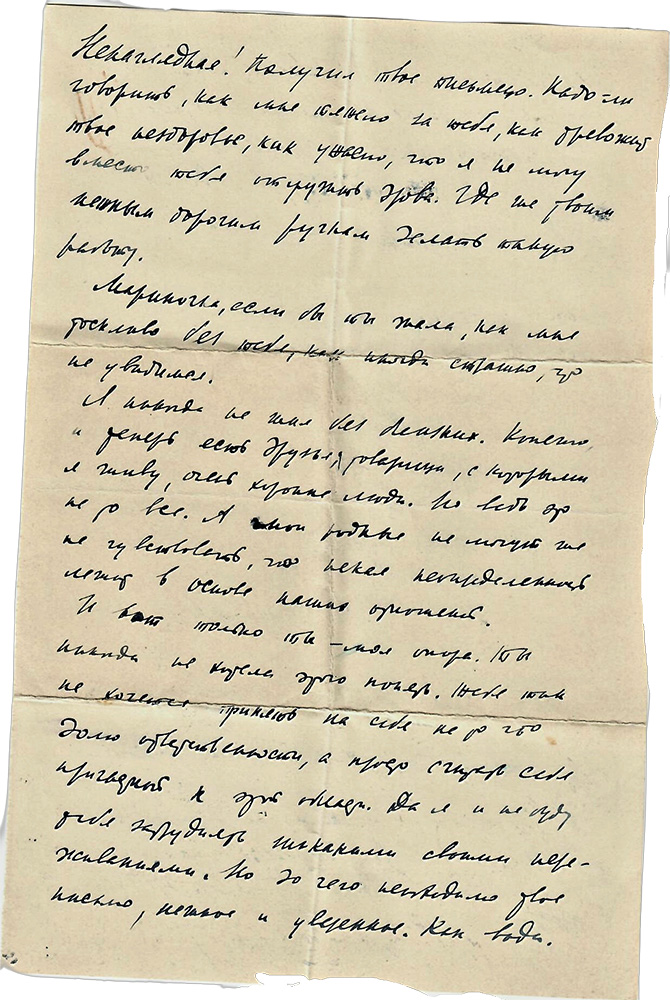 Ненаглядная! Получил твое письмецо. Надо-ли
говорить, как мне тяжело за тебя, как тревожит
твое нездоровье, как ужасно, что я не могу
вместо тебя отгружать дрова. Где же твоим
нежным дорогим ручкам делать такую
работу.
Мариночка, если бы ты знала, как мне
тоскливо без тебя, как иногда страшно, что
не увидимся.
Я никогда не жил без близких. Конечно,
и теперь есть друзья, товарищи, с которыми
я живу, очень хорошие люди. Но ведь это
не то все. А мои родные не могут же
не чувствовать, что некая неопределенность
лежит в основе наших отношений.
И вот только ты – моя опора. Ты
никогда не хотела этого понять. Тебе так
не хочется принять на себя не то что
долю ответственности, а просто считать себя
причастной к этой
тебя затруднять никакими своими пере-
живаниями. Но до чего необходимо твое
письмо, нежное и уверенное. Как вода.